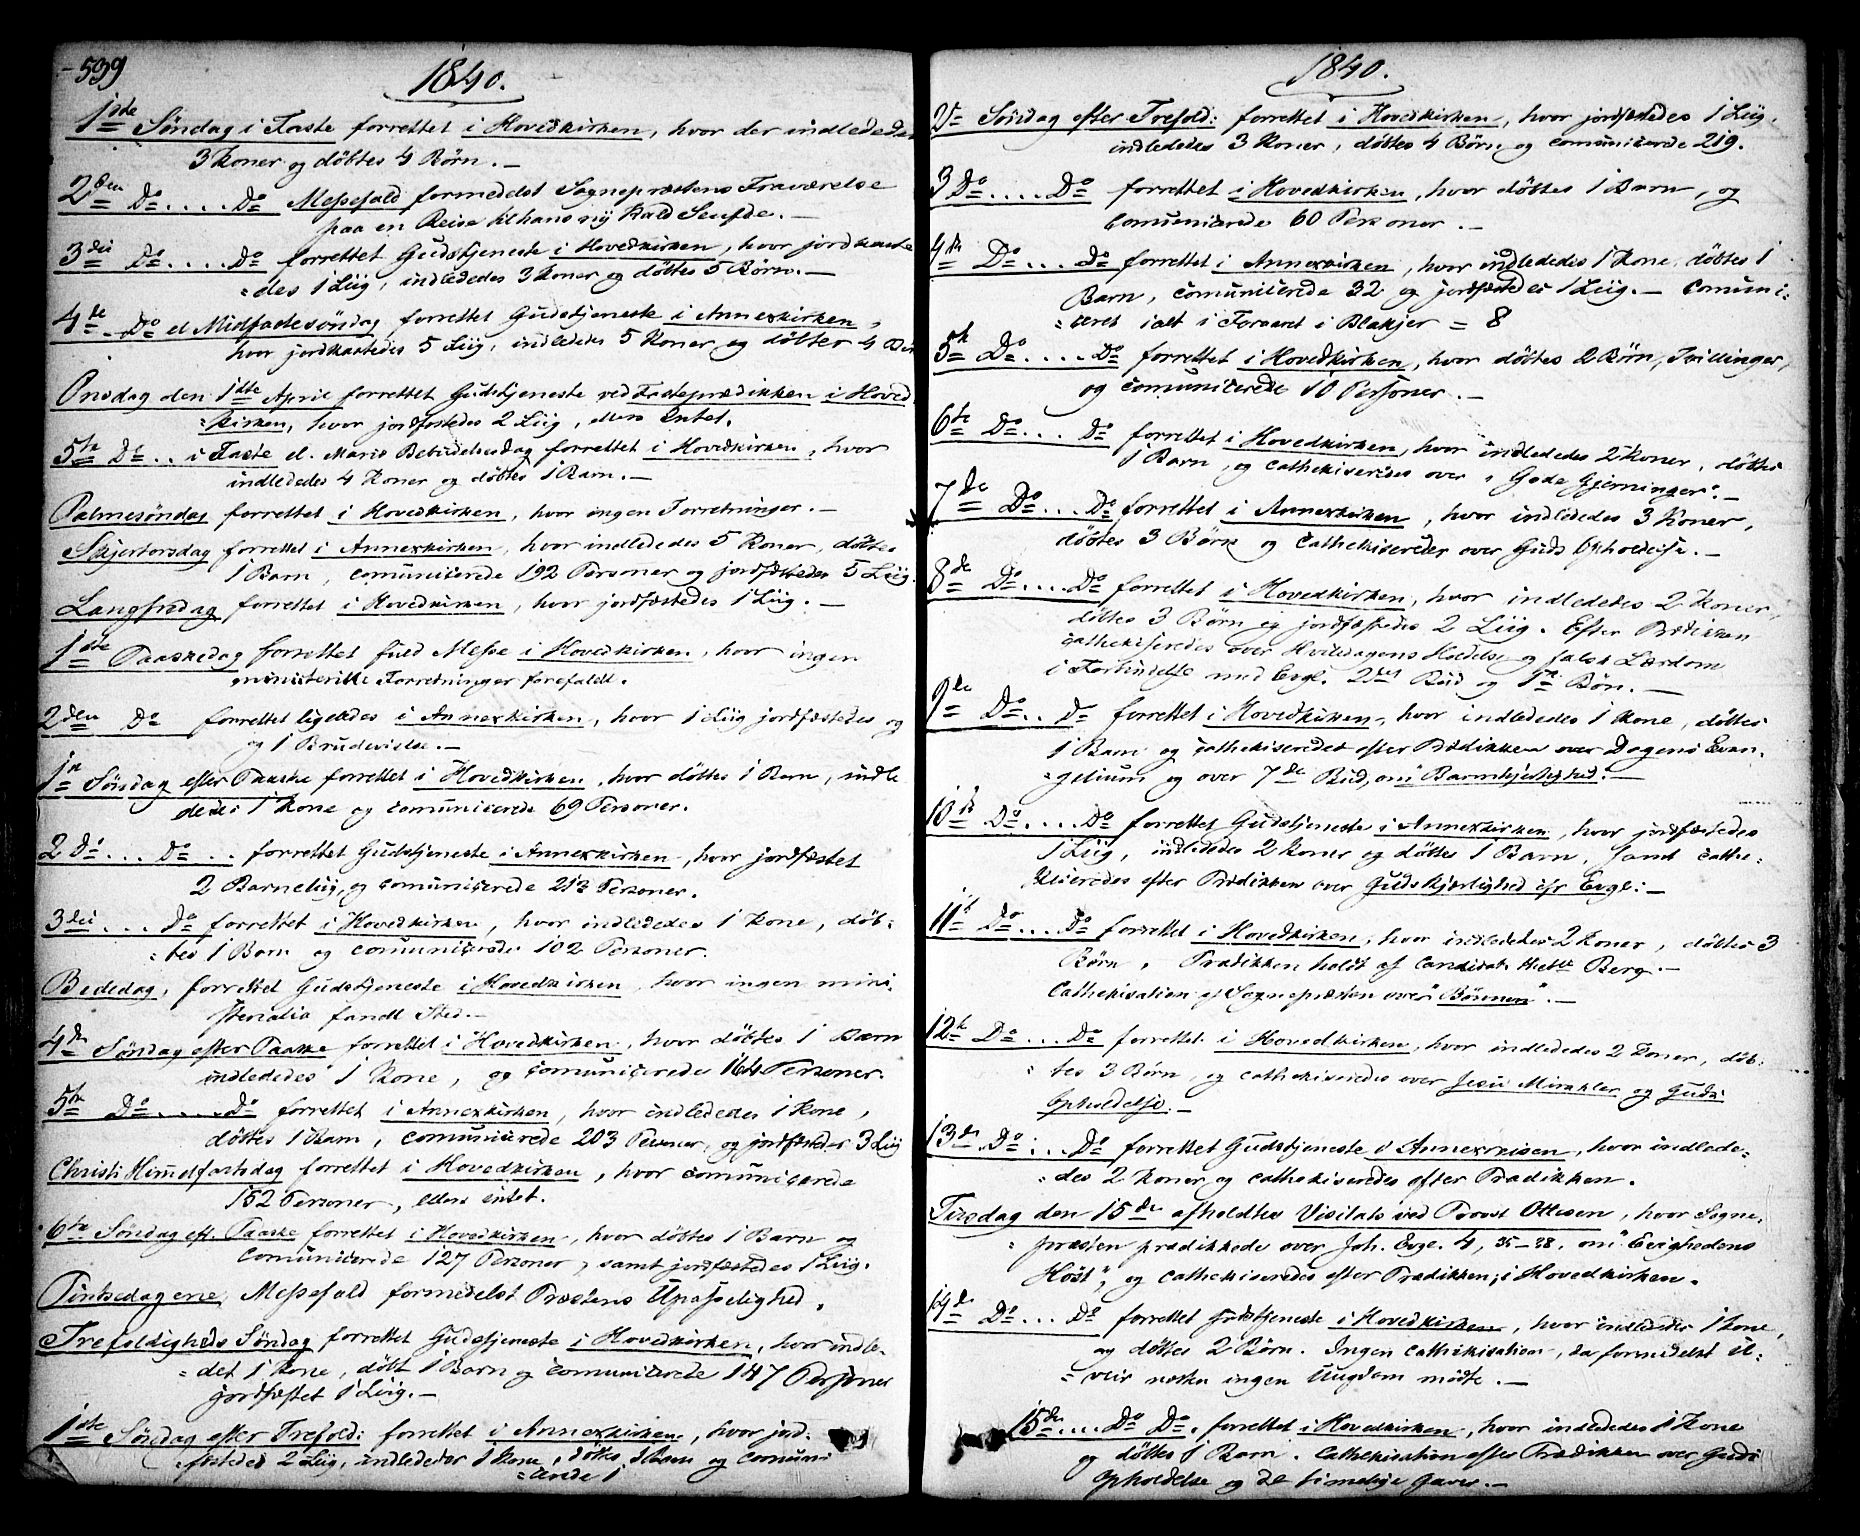 539
1840.
1ste Søndag i Faste forrettet i Hovedkirken, hvor der indlededes
3 Koner og døbtes 4 Børn. —
2den Do .... Do Messefald formedelst Sognepræstens Fraværelse
paa en Reise til hans nÿ Kald
3die Do .... Do forrettet Gudstjeneste i Hovedkirken, hvor jordkaste
=des 1 Liig, indlededes 3 Koner og døbtes 5 Børn. —
4de .. Do el Midfastesøndag forrettet Gudstjeneste i Annexkirken,
hvor jordkastedes 5 Liig, indlededes 5 Koner og døbtes 4 Børn
Onsdag den 1ste April forrettet Gudstjeneste ved Fasteprædikken i Hoved
=kirken, hvor jordfæstedes 2 Liig, ellers Intet.
5te Do .. i Faste el. Mariæ Bebudelsesdag forrettet i Hovedkirken, hvor
indlededes 4 Koner og døbtes 1 Barn. —
Palmesøndag forrettet i Hovedkirken, hvor ingen Forretninger. —
Skjertorsdag forrettet i Annexkirken, hvor indlededes 5 Koner, døbtes
1 Barn, comunicerede 192 Personer og jordfæstedes 5 Liig.
Langfredag forrettet i Hovedkirken, hvor jordfæstedes 1 Liig. —
1ste Paaskedag forrettet fuld Messe i Hovedkirken, hvor ingen
ministerielle Forretninger forefaldt.
2den Do forrettet ligeledes i Annexkirken, hvor 1 Liig jordfæstedes og
og 1 Brudevielse. —
1ste Søndag efter Paaske forrettet i Hovedkirken, hvor døbtes 1 Barn, indle
dedes 1 Kone og comunicerede 69 Personer.
2 Do ... Do .. forrettet Gudstjeneste i Annexkirken, hvor jordfæstet
2 Barnelig, og comunicerede 213 Personer.
3die ... Do forrettet i Hovedkirken, hvor indlededes 1 Kone, døb=
=tes 1 Barn og comunicerede 102 Personer.
Bededag, forrettet Gudstjeneste i Hovedkirken, hvor ingen mini=
sterialia fandt Sted. —
4de Søndag efter Paaske forrettet i Hovedkirken, hvor døbtes 1 Barn
indlededes 1 Kone, og comunicerede 164 Personer.
5te Do .... Do forrettet i Annexkirken, hvor indlededes 1 Kone,
døbtes 1 Barn, comunicerede 203 Personer, og jordfæstedes 3 Liig
Christi Himmelfartsdag forrettet i Hovedkirken, hvor comunicerede
152 Personer, ellers intet.
6te Søndag eft. Paaske forrettet i Hovedkirken, hvor døbtes 1 Barn og
comunicerede 127 Personer, samt jordfæstedes 1 Liig.
Pintsedagene, Messefald formedelst Præstens Upasselighed.
Trefoldigheds Søndag forrettet Gudstjeneste i Hovedkirken, hvor indle=
=det 1 Kone, døbt 1 Barn og comunicerede 147 Personer
jordfæstet 1 Liig. —
1ste Søndag efter Trefold: forrettet i Annexkirken, hvor jord=
=fæstedes 2 Liig, indlededes 1 Kone, døbtes 1 Barn og comuni
=cerede 1
1840.
2den Søndag efter Trefold: forrettet i Hovedkirken, hvor jordfæstedes 1 Liig,
indlededes 3 Koner, døbtes 4 Børn og comunicerede 219.
3 Do .... Do forrettet i Hovedkirken, hvor døbtes 1 Barn, og
comunicerede 60 Personer. —
4de Do ... do forrettet i Annexkirken, hvor indlededes 1 Kone, døbtes 1
Barn, comunicerede 32 og jordfæstedes 1 Liig. — Comuni=
=ceret ialt i Foraaret i Blakjer = 8
5te Do .... Do forrettet i Hovedkirken, hvor døbtes 2 Børn, Tvillinger,
og comunicerede 10 Personer. —
6te Do ... Do forrettet i Hovedkirken, hvor indlededes 2 Koner, døbtes
1 Barn, og cathekiseredes over "Gode Gjerninger". —
7de Do ... Do forrettet i Annexkirken, hvor indlededes 3 Koner,
døbtes 3 Børn og cathekiseredes over Guds Opholdelse. —
8de Do .... Do forrettet i Hovedkirken, hvor indlededes 2 Koner,
døbtes 3 Børn og jordfæstedes 2 Liig. Efter Prædikken
cathekiseredes over Hviledagens Holdelse og falsk Lærdom
i Forbindelse med Evgl. 2det Bud og 1ste Bøn. —
9de Do .. Do forrettet i Hovedkirken, hvor indlededes 1 Kone, døbtes
1 Barn og cathekiseredes efter Prædikken over Dagens Evan=
=gelium og over 7de Bud, om Barmhjertighed. —
10de Do .... Do forrettet Gudstjeneste i Annexkirken, hvor jordfæstedes
1 Liig, indlededes 2 Koner og døbtes 1 Barn, samt cathe=
kiseredes efter Prædikken over Guds Kjærlighed efr Evgl: —
11te Do .... Do forrettet i Hovedkirken, hvor indlededes 2 Koner, døbtes 3
Børn, Prædikken holdt af Candidat Berg. —
Cathekisation af Sognepræsten over "Bønnen". —
12te Do ... Do forrettet i Hovedkirken, hvor indlededes 2 Koner, døb=
=tes 3 Børn og cathekiseredes over Jesu Mirakler og Guds
Opholdelse. —
13de Do : Do forrettet Gudstjeneste i Annexkirken, hvor indlede=
=des 2 Koner og cathekiseredes efter Prædikken.
Tirsdag den 15de afholdtes Visitats ved Provst Ottesen, hvor Sogne=
=præsten prædikkede over Joh. Evgl. 4, 35–38. om "Evighedens
Høst", og cathekiseredes efter Prædikken, i Hovedkirken.
14de Do ... Do forrettet Gudstjeneste i Hovedkirken, hvor indlededes 1 Kone,
og døbtes 2 Børn. Ingen cathekisation, da formedelst U=
=veir næsten ingen Ungdom mødte. —
15de .... Do Do. forrettet i Hovedkirken, hvor indlededes 1 Kone
og døbtes 1 Barn. Cathekisation efter Prædikken over Guds
Opholdelse og de timelige Gaver. —